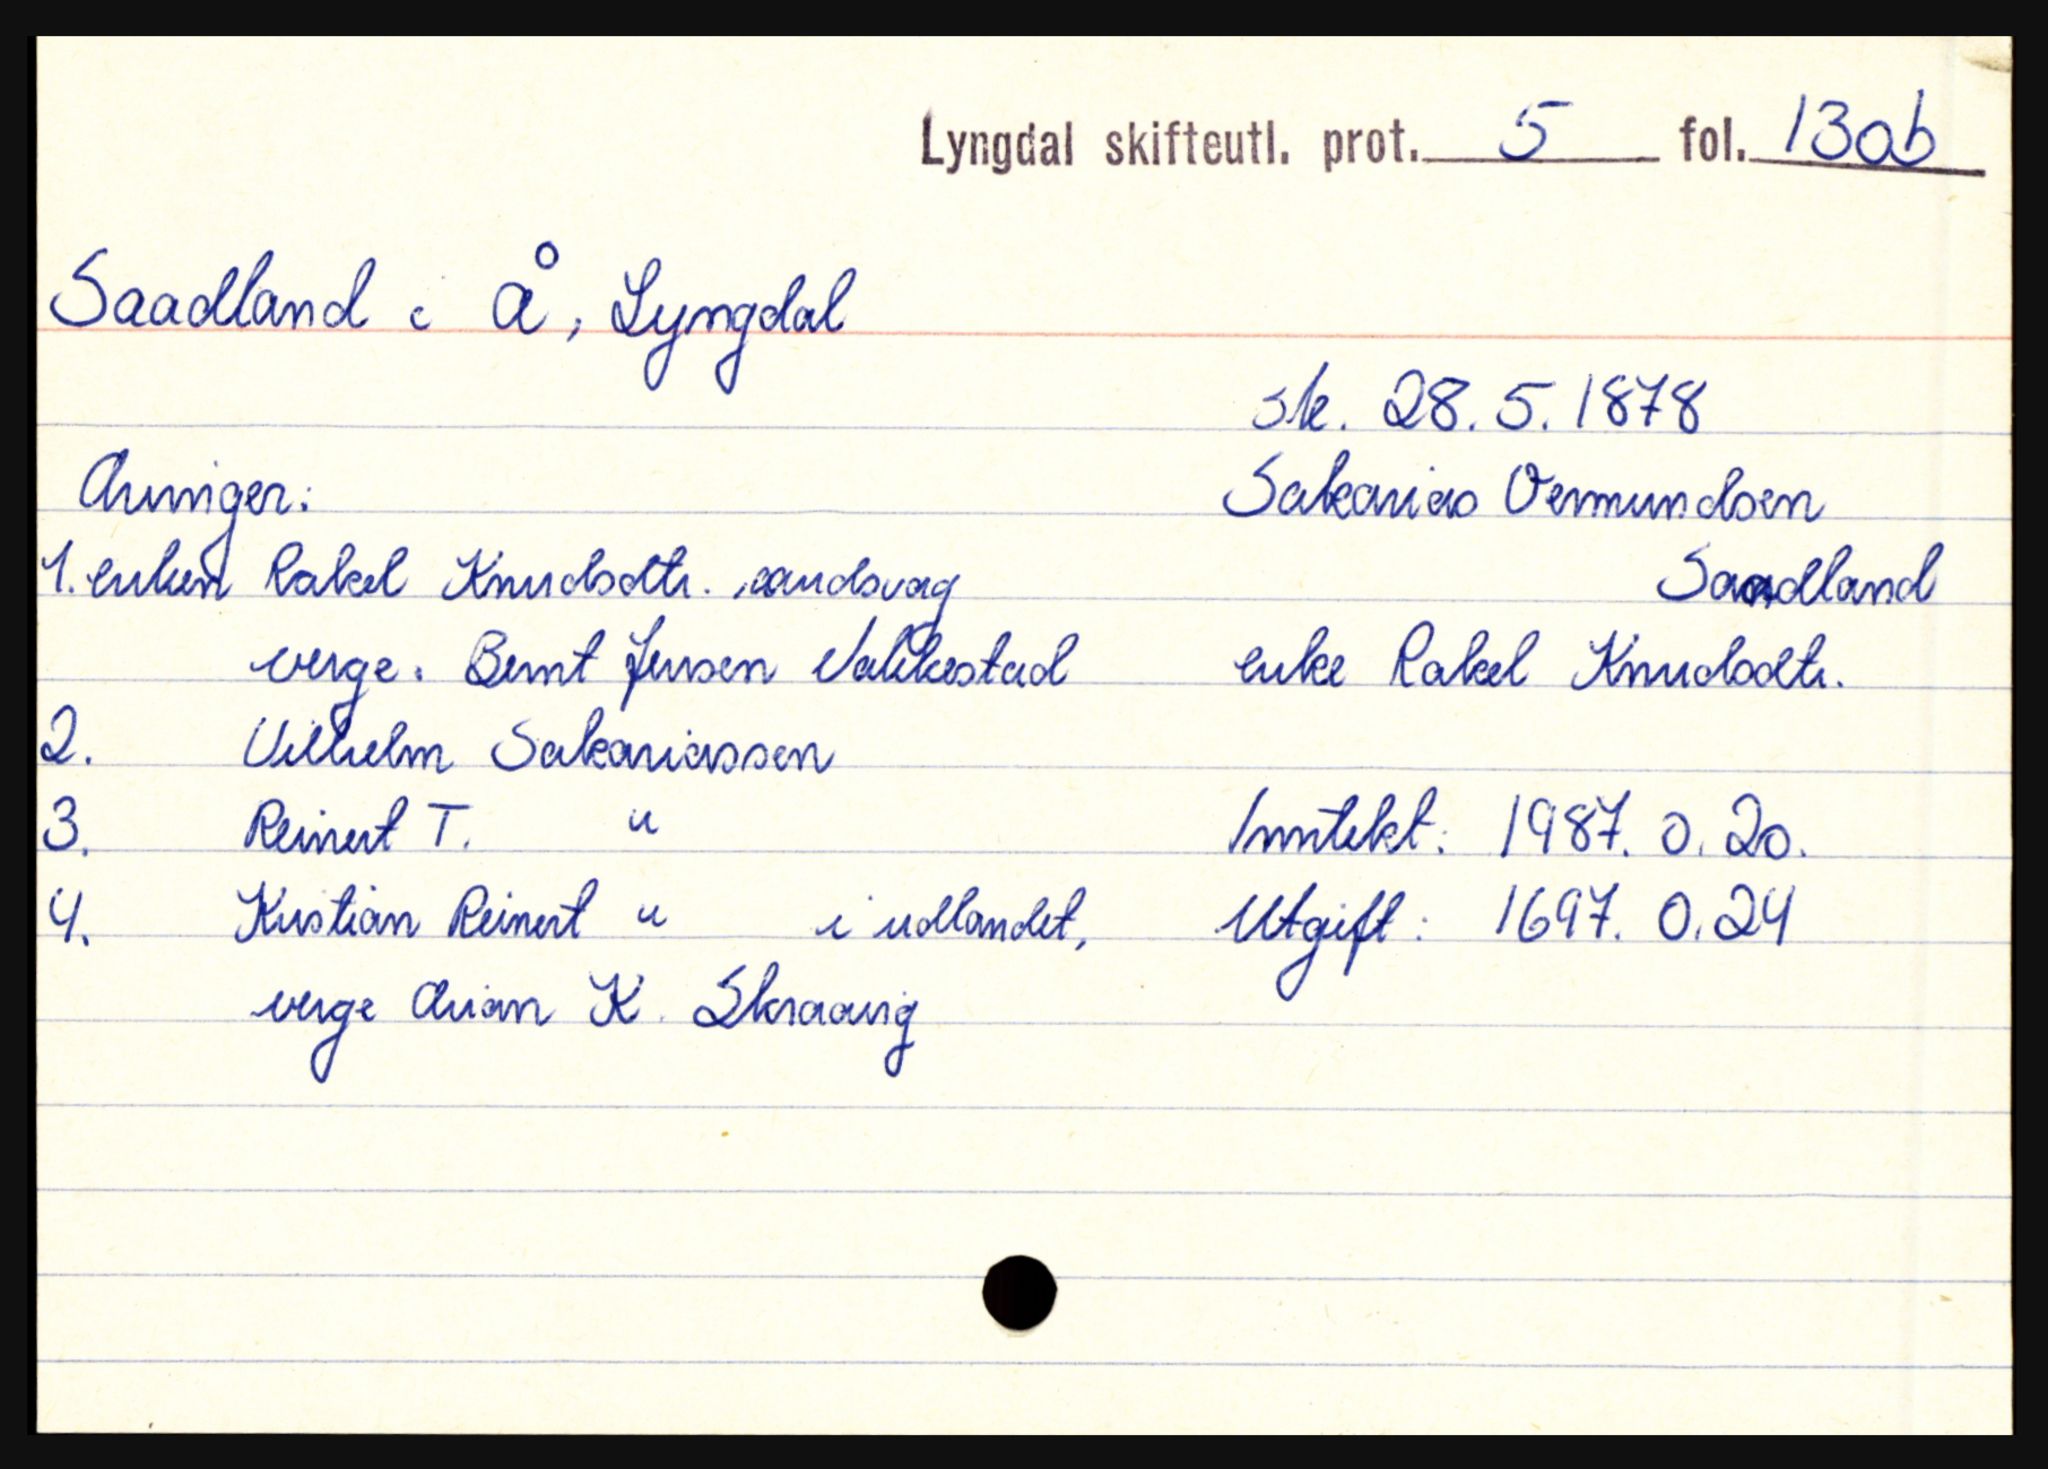 Lyngdal skifteutl. prot. 5 fol. 13ab
Saadland i Å, Lyngdal
sk. 28.5.1878
Sakarias Vermundsen
Saadland
enke Rakel Knudsdtr.
Inntekt: 1987. 0. 20.
Utgift: 1697. 0. 24
Arvinger:
1. enken Rakel Knudsdtr. sandsvag
verge: Bernt Jensen Vakkestad
2. Vilhelm Sakariassen
3. Reinert T. "
4. Kristian Reinert " i udlandet,
verge Arian K. Skraavig